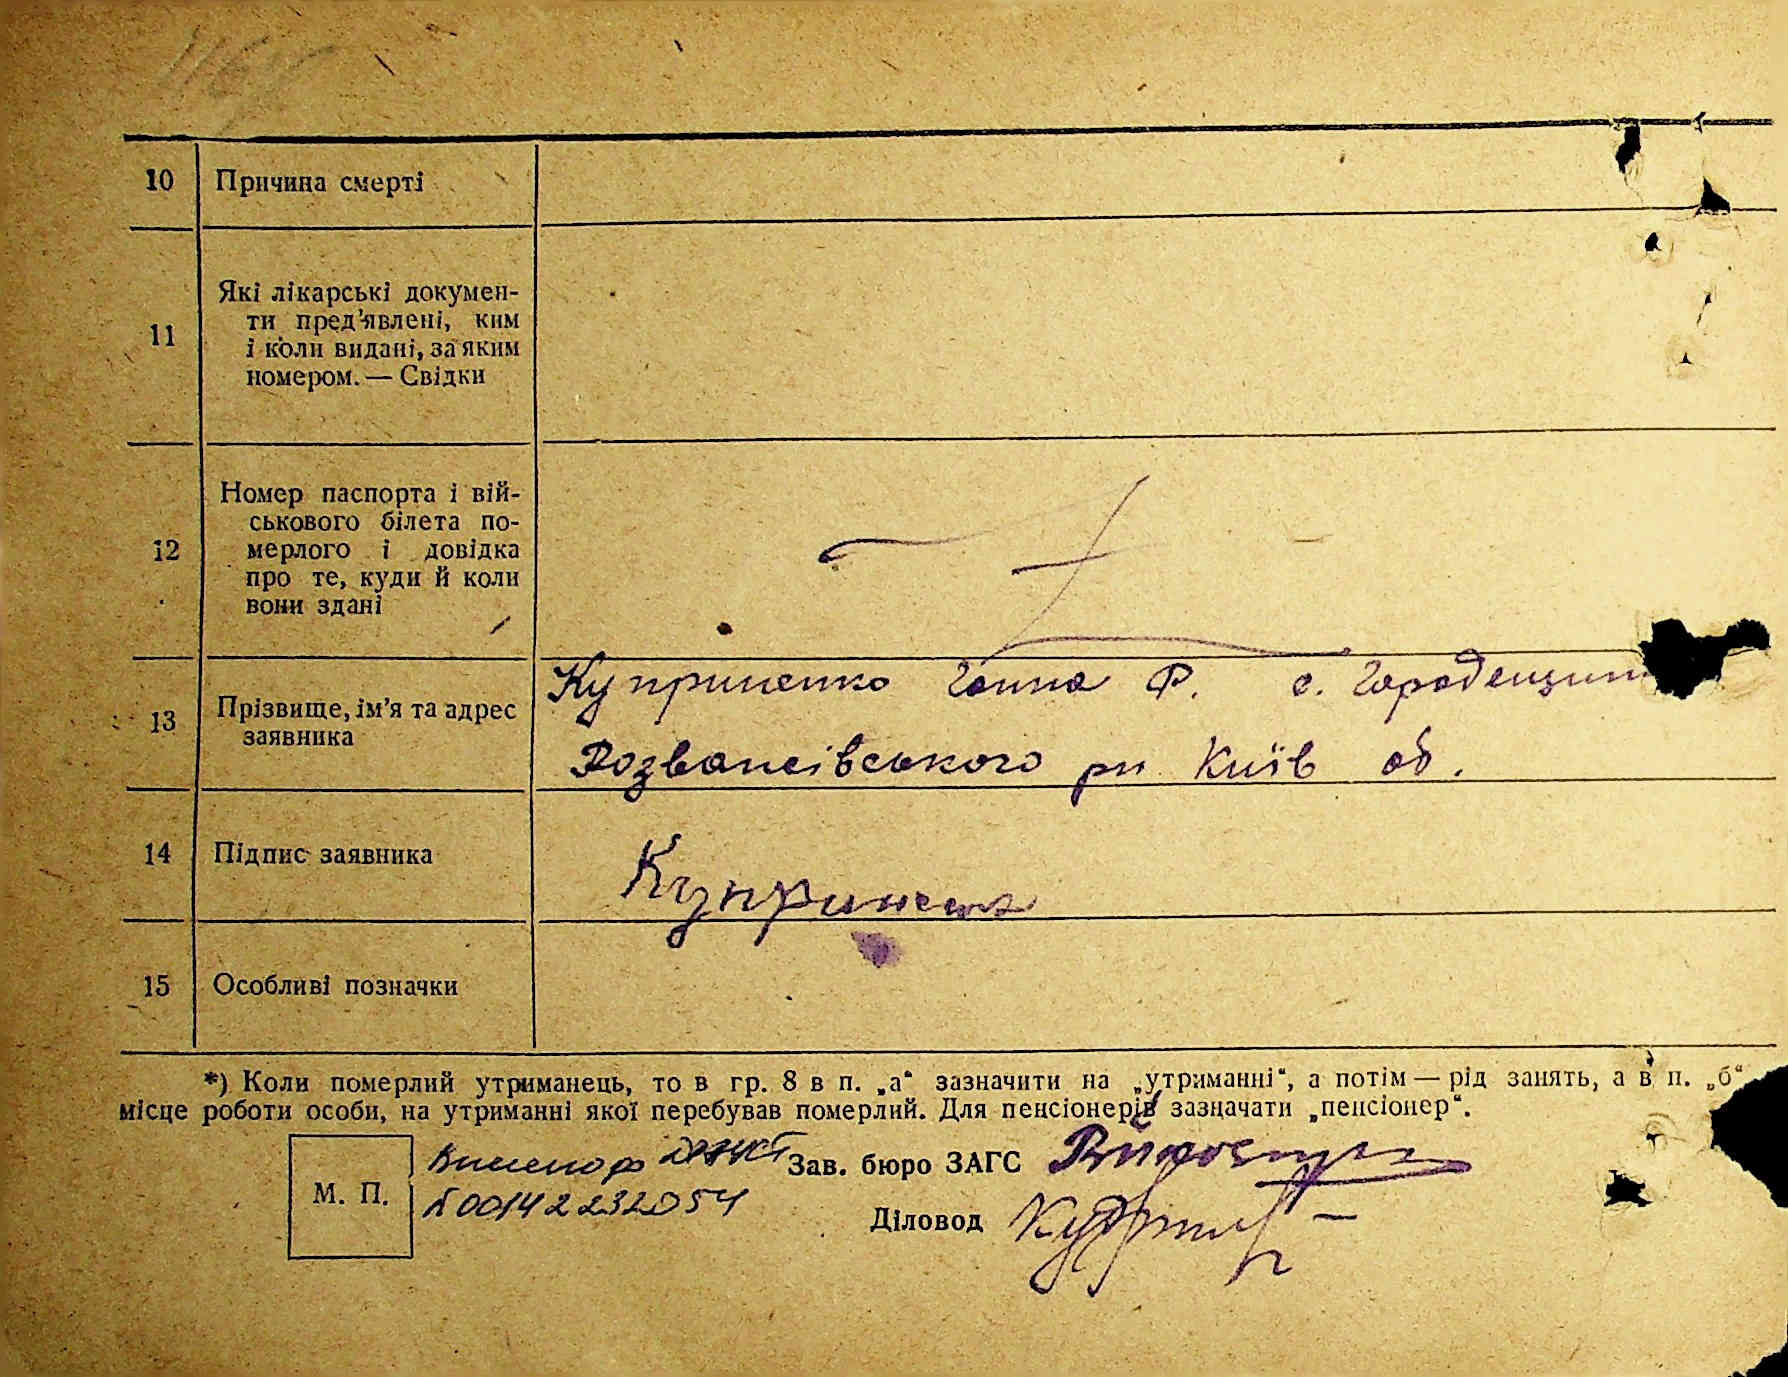 10 Причина смерті
11 Які лікарські докумен-
ти пред'явлені, ким
і коли видані, за яким
номером. — Свідки
12 Номер паспорта і вій-
ськового білета по-
мерлого і довідка
про те, куди й коли
вони здані
Куприненко Ганна Ф. с. Городещин
13 Прізвище, ім'я та адрес
заявника
Розважівського рн Київ об.
14 Підпис заявника
15 Особливі позначки
*) Коли померлий утриманець, то в гр. 8 в п. „а“ зазначити на „утриманні“, а потім — рід занять, а в п. „б“
місце роботи особи, на утриманні якої перебував померлий. Для пенсіонерів зазначати „пенсіонер“.
М. П.
Зав. бюро ЗАГС
00142232054
Діловод